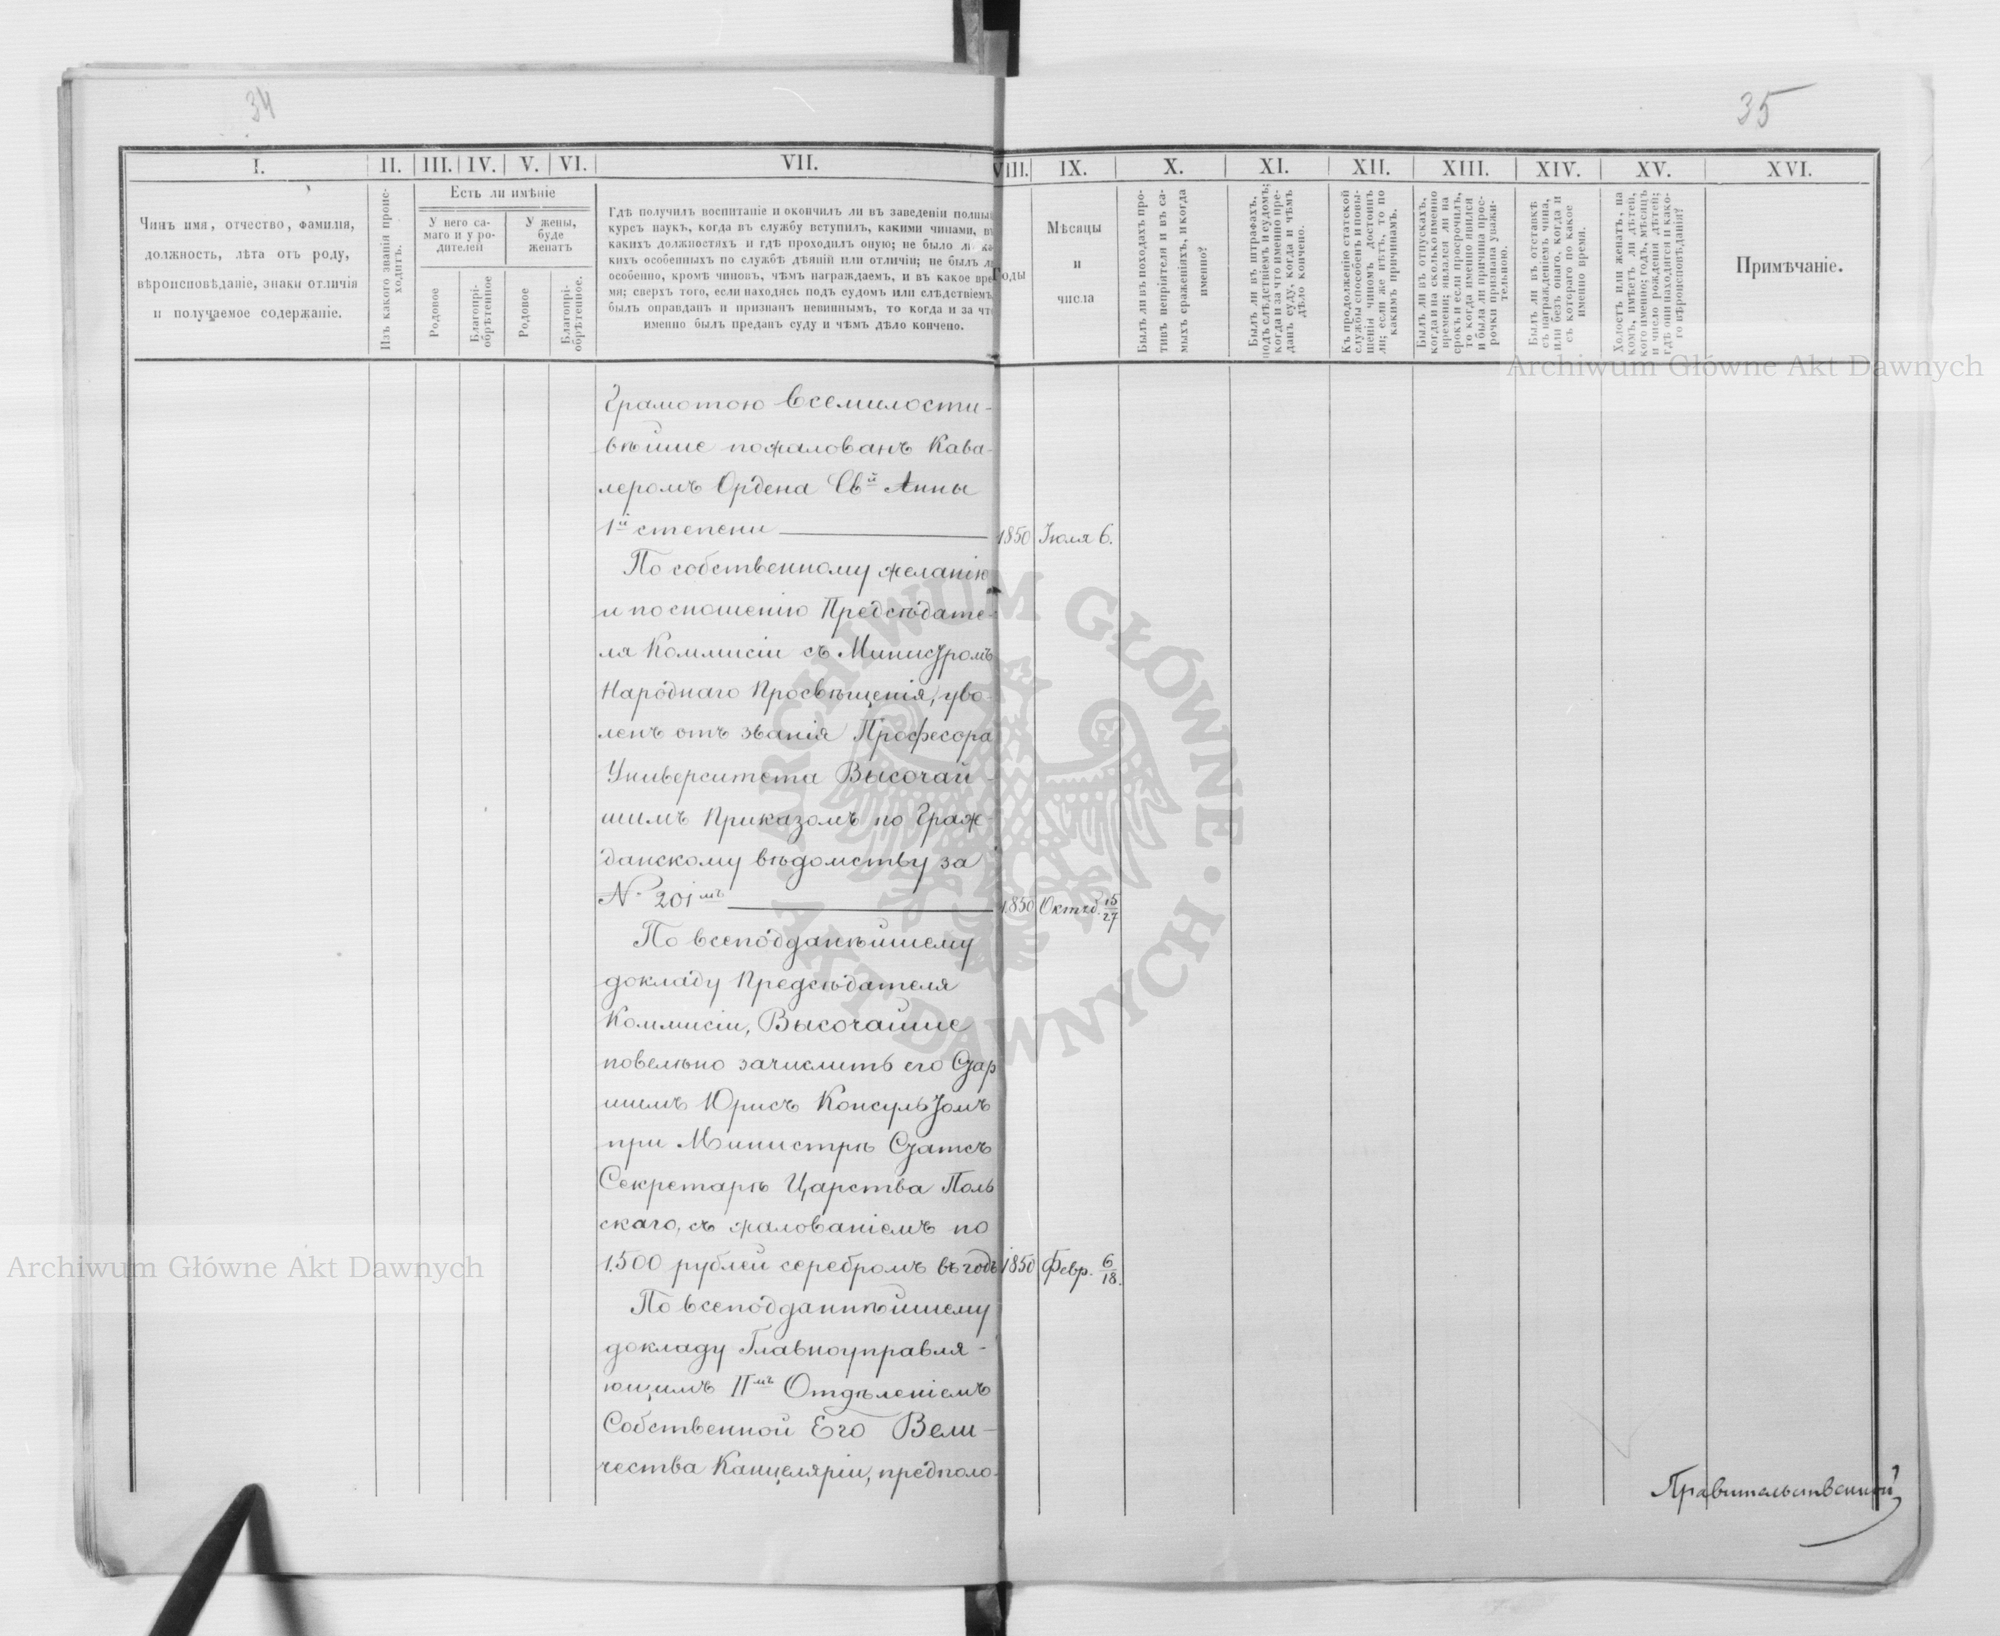 34
35
I.
II.
III.
IV.
V.
VI.
VII.
VIII.
IX.
X.
XI.
XII.
XIII.
XIV.
XV.
XVI.
Чинъ имя, отчество, фамилія,
должность, лѣта отъ роду,
вѣроисповѣданіе, знаки отличія
и получаемое содержаніе.
Изъ какого званія проис-
ходитъ.
Есть ли имѣніе
У него са-
маго и у ро-
дителей
У жены,
буде
женатъ
Родовое
Благопрі-
обрѣтенное
Родовое
Благопрі-
обрѣтенное.
Гдѣ получилъ воспитаніе и окончилъ ли въ заведеніи полный
курсъ наукъ, когда въ службу вступилъ, какими чинами, въ
какихъ должностяхъ и гдѣ проходилъ оную; не было ли ка
кихъ особенныхъ по службѣ дѣяній или отличій; не былъ ли
особенно, кромѣ чиновъ, чѣмъ награждаемъ, и въ какое вре
мя; сверхъ того, если находясь подъ судомъ или слѣдствіемъ,
былъ оправданъ и признанъ невиннымъ, то когда и за что
именно былъ преданъ суду и чѣмъ дѣло кончено.
Годы
Мѣсяцы
и
числа
Былъ ли въ походахъ про-
тивъ непріятеля и въ са-
мыхъ сраженіяхъ, и когда
именно?
Былъ ли въ штрафахъ,
подъ слѣдствіемъ и судомъ;
когда и за что именно пре-
данъ суду, когда и чѣмъ
дѣло кончено.
Къ продолженію статской
службы способенъ и повы-
шенія чиномъ достоинъ
ли; если же нѣтъ, то по
какимъ причинамъ.
Былъ ли въ отпускахъ,
когда и на сколько именно
времени; явился ли на
срокъ и если просрочилъ,
то когда именно явился
и была ли причина прос-
рочки признана уважи-
тельною.
Былъ ли въ отставкѣ
съ награжденіемъ чина,
или безъ онаго, когда и
съ котораго по какое
именно время.
Холостъ или женатъ, на
комъ, имѣетъ ли дѣтей,
кого именно; годъ, мѣсяцъ
и число рожденія дѣтей;
гдѣ они находятся и како-
го вѣроисповѣданія?
Примѣчаніе.
Archiwum Główne Akt Dawnych
Грамотою Всемилости-
вѣйше пожалованъ Кава-
леромъ Ордена Св<sup>й</sup> Анны
1<sup>й</sup> степени 1850 Іюля 6.
По собственному желанію
и по сношенію Предсѣдате-
ля Коммисіи съ Министромъ
Народнаго Просвѣщенія, уво-
ленъ отъ званія Професора
Университета Высочай-
шимъ Приказомъ по Граж
данскому вѣдомству за
№ 201<sup>мъ</sup> 1850 Октяб. 15/27
По всеподданѣйшему
докладу Предсѣдателя
Коммисіи, Высочайше
повелѣно зачислить его Стар
шимъ Юрисъ Консультомъ
при Министрѣ Статсъ
Секретарѣ Царства Поль
скаго, съ жалованіемъ по
1.500 рублей серебромъ въ годъ 1850 Февр. 6/18.
По всеподданнѣйшему
докладу Главноуправля-
ющимъ II<sup>мъ</sup> Отдѣленіемъ
Собственной Его Вели-
чества Канцеляріи, предполо-
Правительственной
ARCHIWUM GŁÓWNE · AKT DAWNYCH ·
Archiwum Główne Akt Dawnych